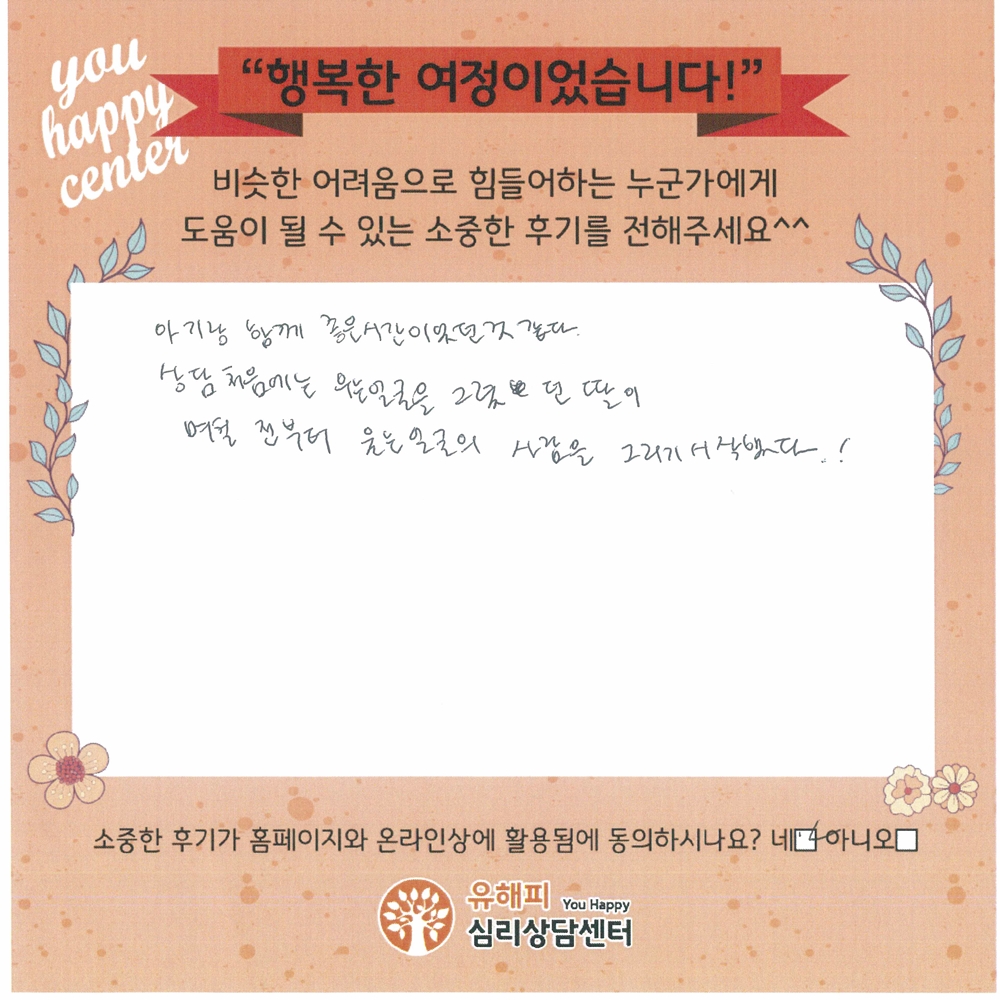 you
happy
center
“행복한 여정이었습니다!”
비슷한 어려움으로 힘들어하는 누군가에게
도움이 될 수 있는 소중한 후기를 전해주세요^^
아기랑 함께 좋은시간이었던것 같다.
상담 처음에는 우는얼굴을 그렸던 딸이
며칠 전부터 웃는얼굴의 사람을 그리기 시작했다.!
소중한 후기가 홈페이지와 온라인상에 활용됨에 동의하시나요? 네 아니오
유해피 You Happy
심리상담센터